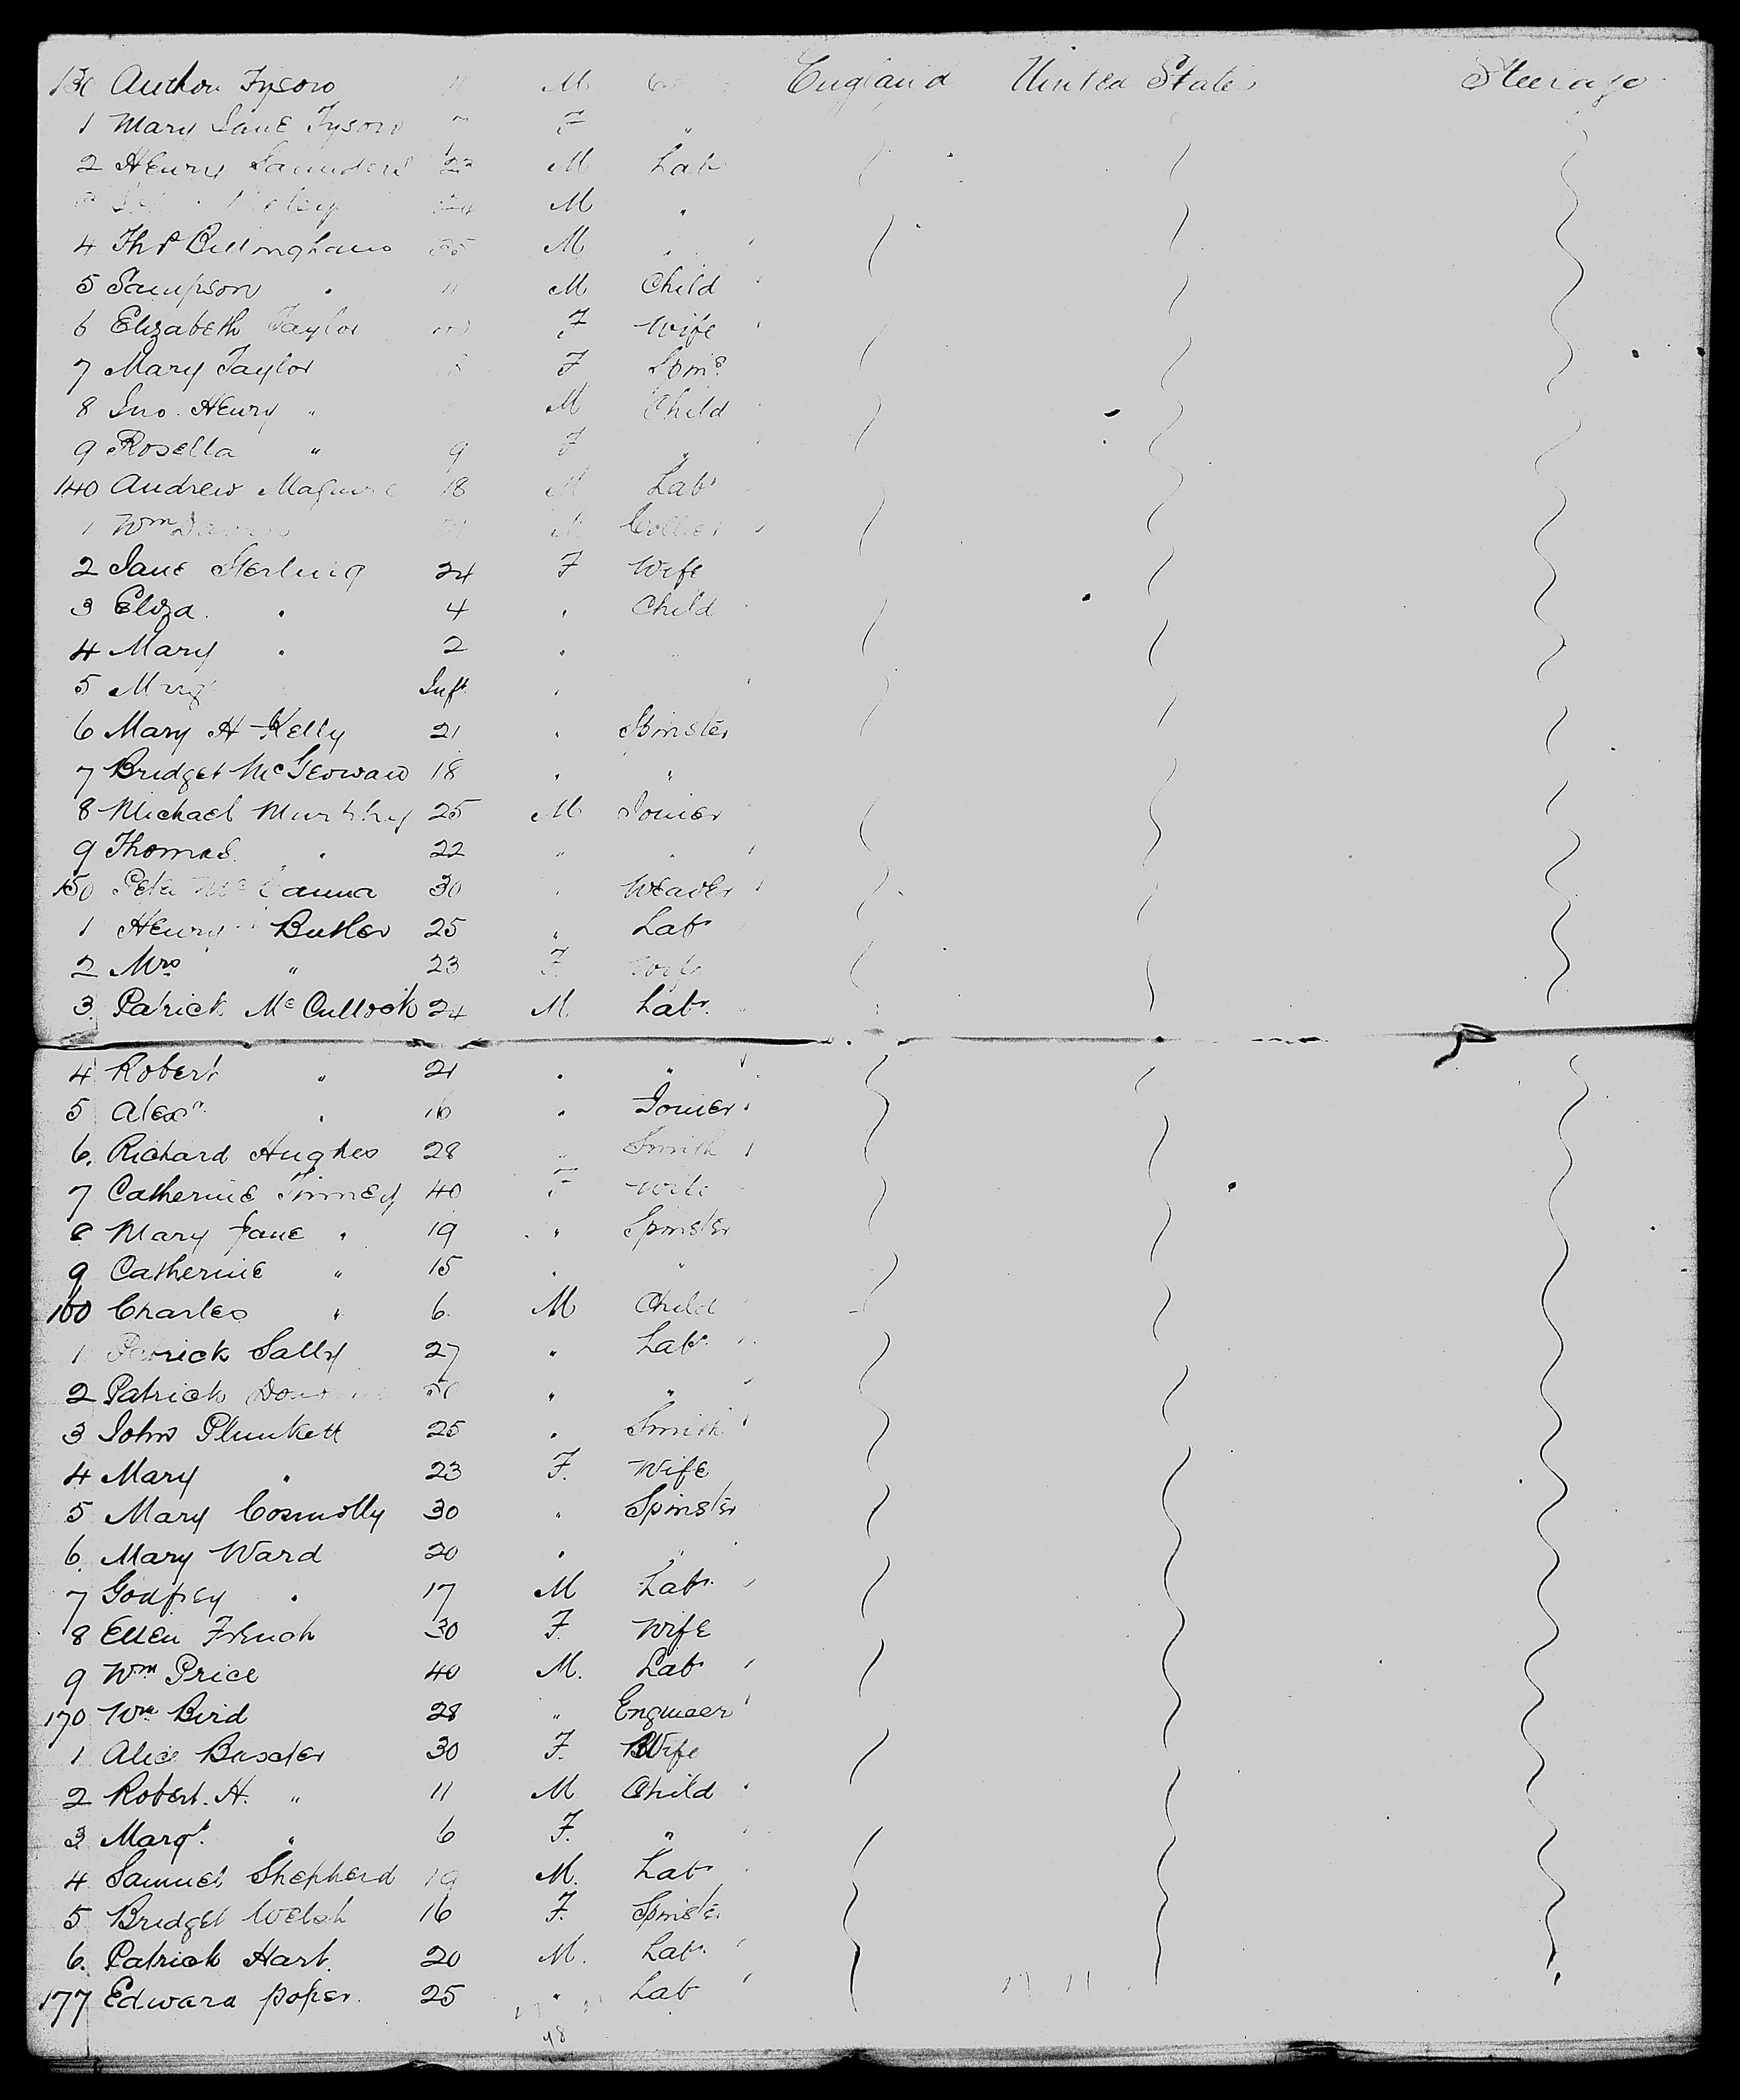 130 Author Tysow 11 M England United States Steerage
1 Mary Jane Tysow 7 F "
2 Henry Saunders 22 M Lab
M "
4 Thos Billingham 25 M "
5 Sampson " 11 M Child
6 Elizabeth Taylor F Wife
7 Mary Taylor F Spinr
8 Jno. Henry " M Child
9 Rosella " 9 F "
140 Andrew Maguire 18 M Lab
1 Wm M Collier
2 Jane Sterling 24 F Wife
3 Eliza " 4 " Child
4 Mary " 2 " "
5 Marg Inft "
6 Mary A Kelly 21 " Spinster
7 Bridget McGeowan 18 " "
8 Michael Murphy 25 M Joiner
9 Thomas " 22 " "
150 Peter McCanna 30 " Weaver
1 Henry Butler 25 " Lab
2 Mrs " 23 F Wife
3 Patrick McCullock 24 M Lab.
4 Robert " 21 " "
5 Alexr " 16 " Joiner
6. Richard Hughes 28 " Smith
7 Catherine Finney 40 F Wife
8 Mary Jane " 19 " Spinster
9 Catherine " 15 " "
160 Charles " 6 M Child
1 Patrick Sally 27 " Lab
2 Patrick " "
3 John Plunkett 25 " Smith
4 Mary " 23 F. Wife
5 Mary Connolly 30 " Spinster
6. Mary Ward 20 " "
7 Godfrey " 17 M Lab
8 Ellen French 30 F. Wife
9 Wm Price 40 M. Lab
170 Wm Bird 28 " Engineer
1 Alice Baxter 30 F. Wife
2 Robert. H. " 11 M Child
3 Margt. " 6 F. "
4 Samuel Shepherd 19 M. Lab
5 Bridget Welsh 16 F. Spinster
6. Patrick Hart. 20 M. Lab
177 Edward Poper. 25 " Lab
48